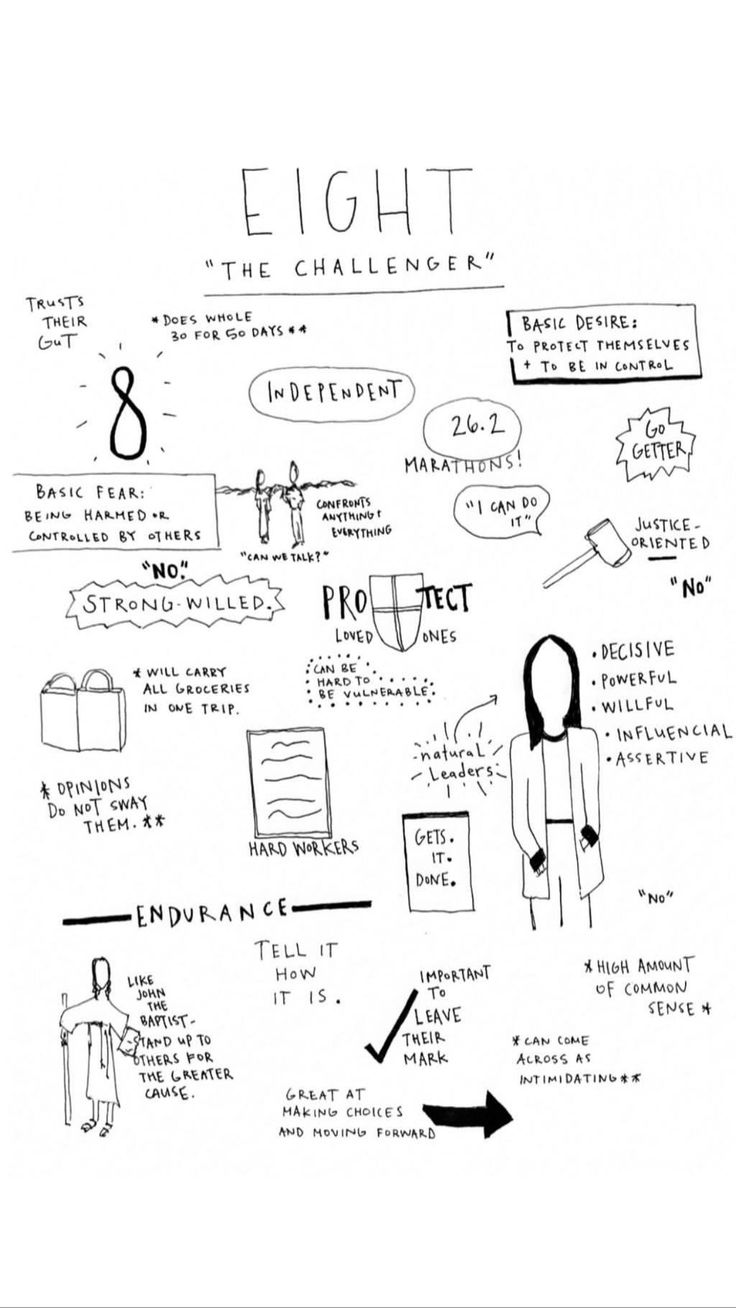 EIGHT
"THE CHALLENGER"
TRUSTS
THEIR
GUT
* DOES WHOLE
30 FOR 50 DAYS **
BASIC DESIRE:
TO PROTECT THEMSELVES
+ TO BE IN CONTROL
8
INDEPENDENT
26.2
MARATHONS!
GO
GETTER
BASIC FEAR:
BEING HARMED OR
CONTROLLED BY OTHERS
CONFRONTS
ANYTHING +
EVERYTHING
"CAN WE TALK?"
"I CAN DO
IT"
JUSTICE-
ORIENTED
"NO."
STRONG-WILLED.
PROTECT
LOVED ONES
"NO"
* WILL CARRY
ALL GROCERIES
IN ONE TRIP.
CAN BE
HARD TO
BE VULNERABLE.
• DECISIVE
• POWERFUL
• WILLFUL
• INFLUENCIAL
• ASSERTIVE
natural
Leaders
* OPINIONS
DO NOT SWAY
THEM. **
HARD WORKERS
GETS.
IT.
DONE.
"NO"
ENDURANCE
TELL IT
HOW
IT IS.
LIKE
JOHN
THE
BAPTIST-
STAND UP TO
OTHERS FOR
THE GREATER
CAUSE.
IMPORTANT
TO
LEAVE
THEIR
MARK
* HIGH AMOUNT
OF COMMON
SENSE *
* CAN COME
ACROSS AS
INTIMIDATING **
GREAT AT
MAKING CHOICES
AND MOVING FORWARD